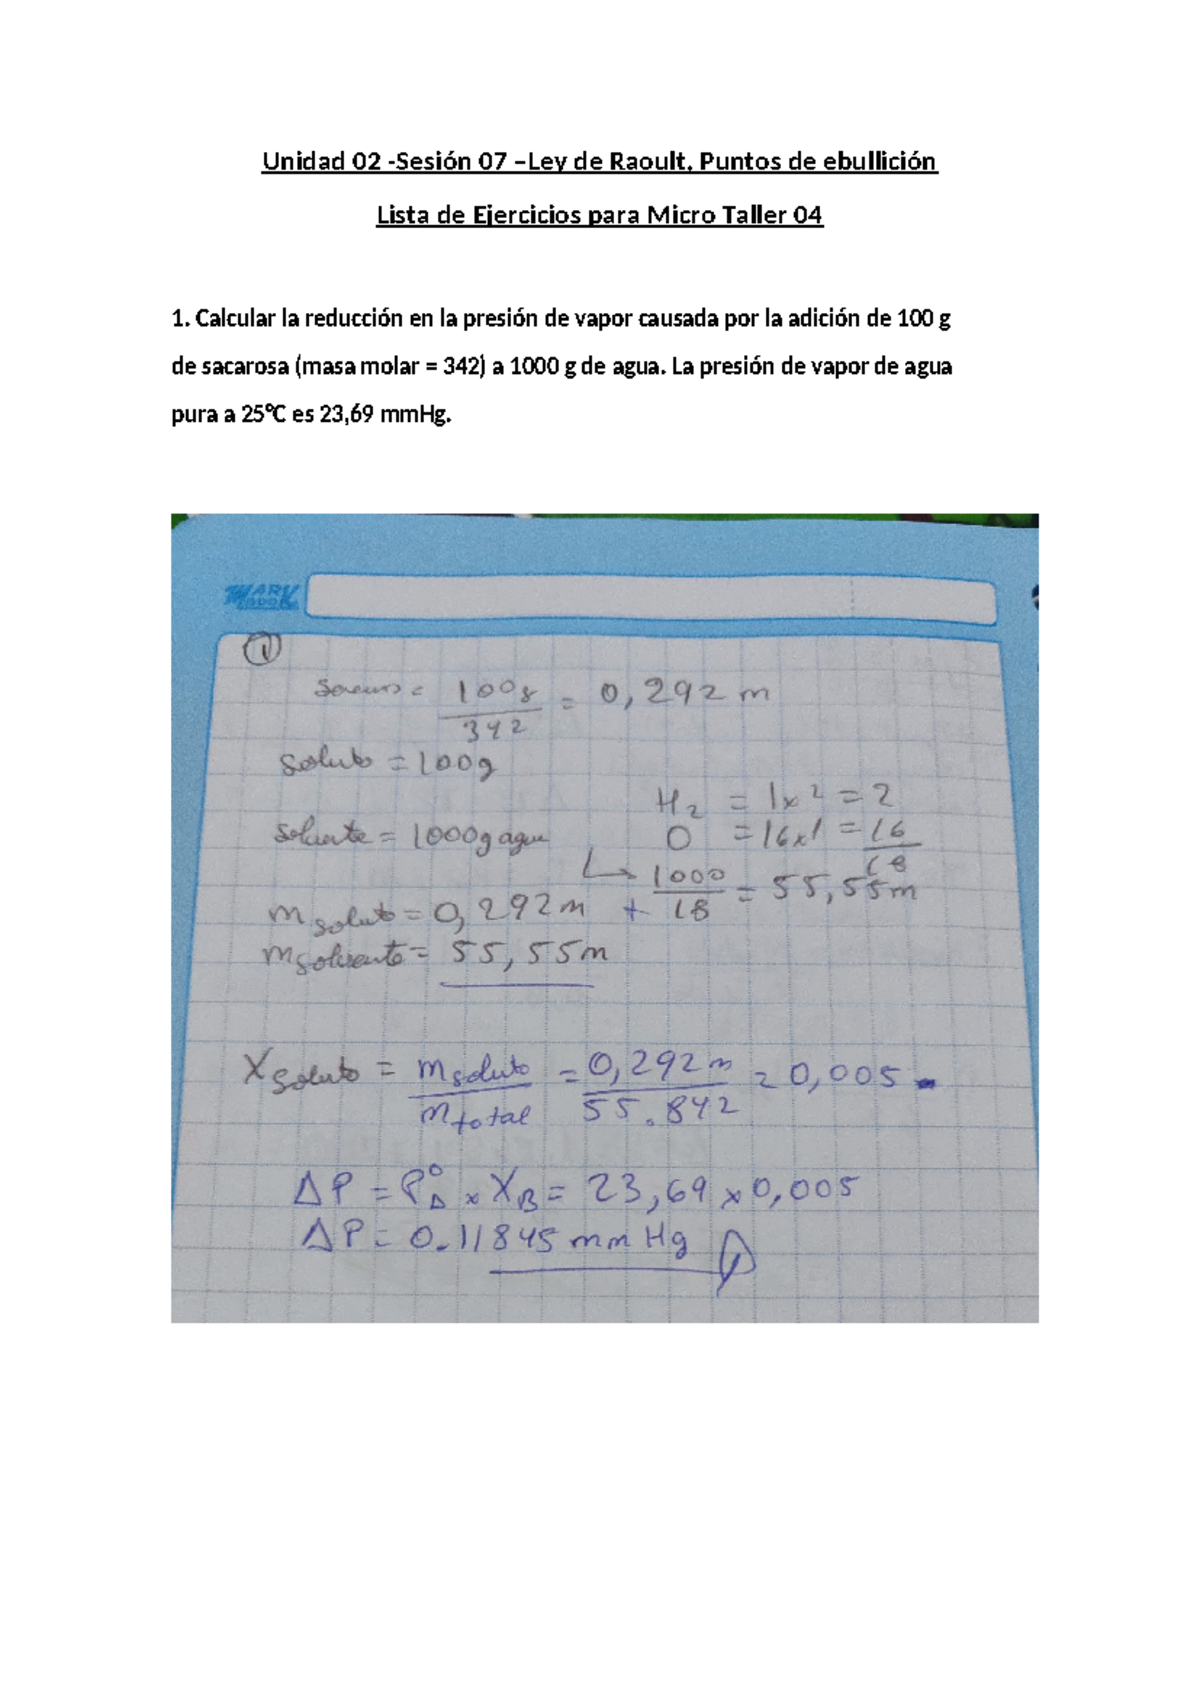 Unidad 02 -Sesión 07 –Ley de Raoult, Puntos de ebullición
Lista de Ejercicios para Micro Taller 04
1. Calcular la reducción en la presión de vapor causada por la adición de 100 g
de sacarosa (masa molar = 342) a 1000 g de agua. La presión de vapor de agua
pura a 25°C es 23,69 mmHg.
①
= 100g / 342 = 0,292 m
Soluto = 100g
H2 = 1x2 = 2
Solvente = 1000g agua
O = 16x1 = 16
18
↳ 1000 / 18 = 55,55m
m soluto = 0,292m +
m solvente = 55,55m
X soluto = m soluto / m total = 0,292 m / 55.842 = 0,005
ΔP = P°A x XB = 23,69 x 0,005
ΔP = 0.11845 mm Hg